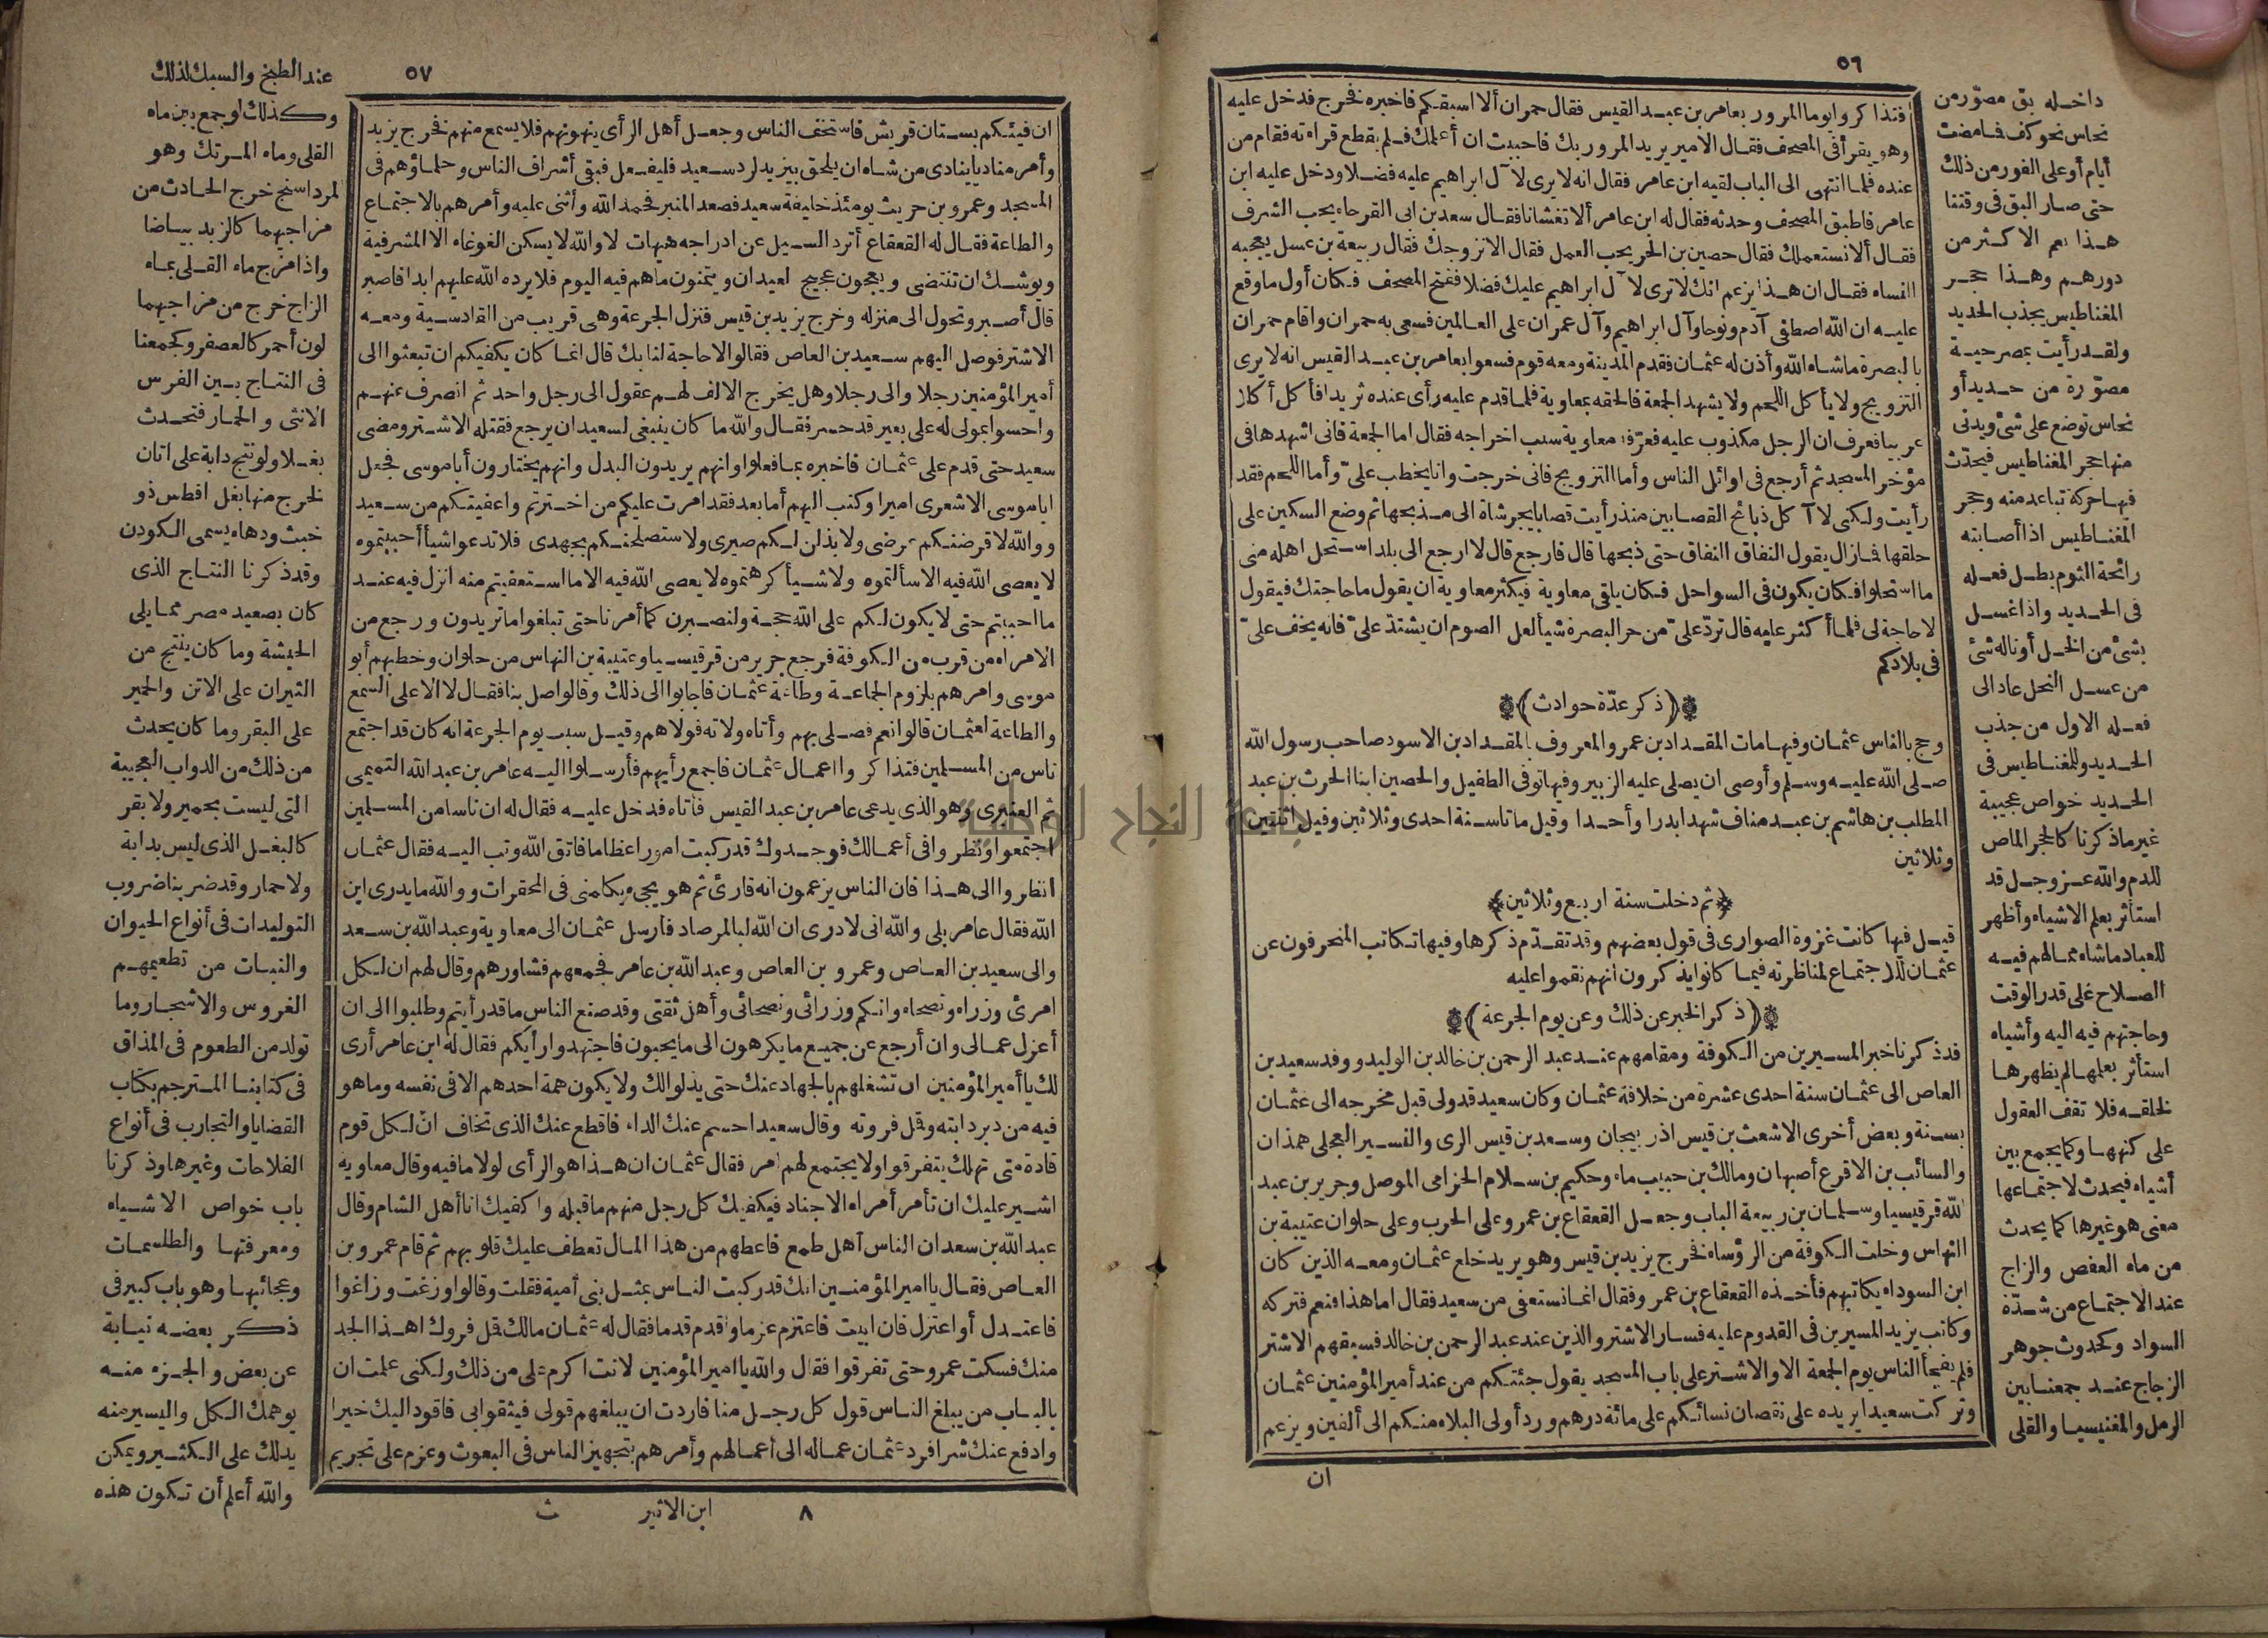 ٥٦
افتذاكروا يوما المرور بعامر بن عبد القيس فقال حمران ألا أسبقكم فاخبره فخرج فدخل عليه
وهو يقرأ فى المصحف فقال الامير يريد المرور بك فاحببت ان أعلمك فلم يقطع قراءته فقام من
عنده فلما انتهى الى الباب لقيه ابن عامر فقال انه لا يرى لآل ابراهيم عليه فضلا ودخل عليه ابن
عامر فاطبق المصحف وحدثه فقال له ابن عامر ألا تغشانا فقال سعد بن ابى القرحاء يحب الشرف
فقال ألا نستعملك فقال حصين بن الحر يحب العمل فقال الا نزوجك فقال ربيعة بن عسل يعجبه
النساء فقال ان هذا يزعم انك لا ترى لآل ابراهيم عليك فضلا ففتح المصحف فكان أول ما وقع
عليه ان الله اصطفى آدم ونوحا وآل ابراهيم وآل عمران على العالمين فسعى به حمران واقام حمران
بالبصرة ما شاء الله وأذن له عثمان فقدم المدينة ومعه قوم فسعوا بعامر بن عبد القيس انه لا يرى
التزويج ولا يأكل اللحم ولا يشهد الجمعة فالحقه بمعاوية فلما قدم عليه رأى عنده ثريدا فأكل أكلا
عربيا فعرف ان الرجل مكذوب عليه فعرّفه معاوية سبب اخراجه فقال اما الجمعة فانى اشهدها فى
مؤخر المسجد ثم أرجع فى اوائل الناس وأما التزويج فانى خرجت وانا يخطب علىّ وأما اللحم فقد
رأيت ولكنى لا آكل ذبائح القصابين منذ رأيت قصابا يجر شاة الى مذبحها ثم وضع السكين على
حلقها فما زال يقول النفاق النفاق حتى ذبحها قال فارجع قال لا ارجع الى بلد استحل اهله منى
ما استحلوا فكان يكون فى السواحل فكان يلقى معاوية فيكثر معاوية ان يقول ما حاجتك فيقول
لا حاجة لى فلما أكثر عليه قال تردّ علىّ من حر البصرة شيأ لعل الصوم ان يشتدّ علىّ فانه يخف علىّ
فى بلادكم
(ذكر عدّة حوادث)
وحج بالناس عثمان وفيها مات المقداد بن عمرو المعروف بالمقداد بن الاسود صاحب رسول الله
صلى الله عليه وسلم وأوصى ان يصلى عليه الزبير وفيها توفى الطفيل والحصين ابنا الحرث بن عبد
المطلب بن هاشم بن عبد مناف شهدا بدرا وأحدا وقيل ماتا سنة احدى وثلاثين وقيل اثنتين
وثلاثين
ثم دخلت سنة اربع وثلاثين
قيل فيها كانت غزوة الصوارى فى قول بعضهم وقد تقدّم ذكرها وفيها تكاتب المنحرفون عن
عثمان للاجتماع لمناظرته فيما كانوا يذكرون انهم نقموا عليه
(ذكر الخبر عن ذلك وعن يوم الجرعة)
قد ذكرنا خبر المسيرين من الكوفة ومقامهم عند عبد الرحمن بن خالد بن الوليد ووفد سعيد بن
العاص الى عثمان سنة احدى عشرة من خلافة عثمان وكان سعيد قد ولى قبل مخرجه الى عثمان
بسنة وبعض أخرى الاشعث بن قيس اذربيجان وسعد بن قيس الرى والنسير العجلى همذان
والسائب بن الاقرع أصبهان ومالك بن حبيب ماه وحكيم بن سلام الخزامى الموصل وجرير بن عبد
الله قرقيسيا وسلمان بن ربيعة الباب وجعل القعقاع بن عمرو على الحرب وعلى حلوان عتيبة بن
النهاس وخلت الكوفة من الرؤساء فخرج يزيد بن قيس وهو يريد خلع عثمان ومعه الذين كان
ابن السوداء يكاتبهم فأخذه القعقاع بن عمر وفقال انما نستعفى من سعيد فقال اما هذا فنعم فتركه
وكاتب يزيد المسيرين فى القدوم عليه فسار الاشتر والذين عند عبد الرحمن بن خالد فسبقهم الاشتر
فلم يفجأ الناس يوم الجمعة الا والاشتر على باب المسجد يقول جئتكم من عند أمير المؤمنين عثمان
وتركت سعيدا يريده على نقصان نسائكم على مائة درهم ورد أولى البلاء منكم الى ألفين ويزعم
ان
داخله بق مصوّر من
نحاس نحو كف فامضت
أيام أو على الفور من ذلك
حتى صار البق فى وقتنا
هذا يعم الاكثر من
دورهم وهذا حجر
المغناطيس يجذب الحديد
ولقد رأيت بمصر حية
مصوّرة من حديد أو
نحاس توضع على شئ ويدنى
منها حجر المغناطيس فيحدّث
فيها حركة تباعد منه وحجر
المغناطيس اذا أصابته
رائحة الثوم بطل فعله
فى الحديد واذا غسل
بشئ من الخل أو ناله شئ
من عسل النحل عاد الى
فعله الاول من جذب
الحديد وللمغناطيس فى
الحديد خواص عجيبة
غير ما ذكرنا كالحجر الماص
للدم والله عز وجل قد
استأثر بعلم الاشياء وأظهر
للعباد ما شاء مما لهم فيه
الصلاح على قدر الوقت
وحاجتهم فيه اليه وأشياء
استأثر بعلمها لم يظهرها
لخلقه فلا تقف العقول
على كنهها وكما يجمع بين
أشياء فيحدث لاجتماعها
معنى هو غيرها كما يحدث
من ماء العفص والزاج
عند الاجتماع من شدّة
السواد وكحدوث جوهر
الزجاج عند جمعنا بين
الرمل والمغنيسيا والقلى
٥٧
ان فيئكم بستان قريش فاستخف الناس وجعل أهل الرأى ينهونهم فلا يسمع منهم فخرج يزيد
وأمر مناديا ينادى من شاء ان يلحق بيزيد لرد سعيد فليفعل فبقى أشراف الناس وحلماؤهم فى
المسجد وعمرو بن حريث يومئذ خليفة سعيد فصعد المنبر فحمد الله وأثنى عليه وأمرهم بالاجتماع
والطاعة فقال له القعقاع أترد السيل عن ادراجه هيهات لا والله لا يسكن الغوغاء الا المشرفية
ويوشك ان تنتضى ويعجون عجيج العيدان ويتمنون ما هم فيه اليوم فلا يرده الله عليهم ابدا فاصبر
قال أصبر وتحول الى منزله وخرج يزيد بن قيس فنزل الجرعة وهى قريب من القادسية ومعه
الاشتر فوصل اليهم سعيد بن العاص فقالوا لا حاجة لنا بك قال انما كان يكفيكم ان تبعثوا الى
أمير المؤمنين رجلا والى رجلا وهل يخرج الالف لهم عقول الى رجل واحد ثم انصرف عنهم
واحسوا بمولى له على بعير قد حسر فقال والله ما كان ينبغى لسعيد ان يرجع فقتله الاشتر ومضى
سعيد حتى قدم على عثمان فاخبره بما فعلوا وانهم يريدون البدل وانهم يختارون أبا موسى فجعل
ابا موسى الاشعرى اميرا وكتب اليهم أما بعد فقد امرت عليكم من اخترتم واعفيتكم من سعيد
ووالله لاقرضنكم عرضى ولابذلن لكم صبرى ولاستصلحنكم بجهدى فلا تدعوا شيأ أحببتموه
لا يعصى الله فيه الا سألتموه ولا شيأ كرهتموه لا يعصى الله فيه الا ما استعفيتم منه انزل فيه عند
ما احببتم حتى لا يكون لكم على الله حجة ولنصبرن كما أمرنا حتى تبلغوا ما تريدون ورجع من
الامراء من قرب من الكوفة فرجع جرير من قرقيسيا وعتيبة بن النهاس من حلوان وخطبهم أبو
موسى وامرهم بلزوم الجماعة وطاعة عثمان فاجابوا الى ذلك وقالوا صل بنا فقال لا الا على السمع
والطاعة لعثمان قالوا نعم فصلى بهم وأتاه ولاته فولاهم وقيل سبب يوم الجرعة انه كان قد اجتمع
ناس من المسلمين فتذاكروا اعمال عثمان فاجمع رأيهم فأرسلوا اليه عامر بن عبد الله التميمى
ثم العنبرى وهو الذى يدعى عامر بن عبد القيس فأتاه فدخل عليه فقال له ان ناسا من المسلمين
اجتمعوا ونظروا فى أعمالك فوجدوك قد ركبت امورا عظاما فاتق الله وتب اليه فقال عثمان
انظروا الى هذا فان الناس يزعمون انه قارئ ثم هو يجىء يكلمنى فى المحقرات ووالله ما يدرى اين
الله فقال عامر بلى والله انى لادرى ان الله لبالمرصاد فأرسل عثمان الى معاوية وعبد الله بن سعد
والى سعيد بن العاص وعمرو بن العاص وعبد الله بن عامر فجمعهم فشاورهم وقال لهم ان لكل
امرئ وزراء ونصحاء وانكم وزرائى ونصحائى وأهل ثقتى وقد صنع الناس ما قد رأيتم وطلبوا الى ان
أعزل عمالى وان أرجع عن جميع ما يكرهون الى ما يحبون فاجتهدوا رأيكم فقال له ابن عامر أرى
لك يا أمير المؤمنين ان تشغلهم بالجهاد عنك حتى يذلوا لك ولا يكون همة احدهم الا فى نفسه وما هو
فيه من دبر دابته وقل فروته وقال سعيد احسم عنك الداء فاقطع عنك الذى تخاف ان لكل قوم
قادة متى تهلك يتفرقوا ولا يجتمع لهم امر فقال عثمان ان هذا هو الرأى لولا ما فيه وقال معاوية
اشير عليك ان تأمر أمراء الاجناد فيكفيك كل رجل منهم ما قبله واكفيك انا أهل الشام وقال
عبد الله بن سعد ان الناس أهل طمع فاعطهم من هذا المال تعطف عليك قلوبهم ثم قام عمرو بن
العاص فقال يا امير المؤمنين انك قد ركبت الناس بمثل بنى أمية فقلت وقالوا وزغت وزاغوا
فاعتدل أو اعتزل فان ابيت فاعتزم عزما واقدم قدما فقال له عثمان مالك قل فروك اهذا الجد
منك فسكت عمرو حتى تفرقوا فقال والله يا امير المؤمنين لانت اكرم على من ذلك ولكنى علمت ان
بالباب من يبلغ الناس قول كل رجل منا فاردت ان يبلغهم قولى فيثقوا بى فاقود اليك خيرا
وادفع عنك شرا فرد عثمان عماله الى أعمالهم وأمرهم بتجهيز الناس فى البعوث وعزم على تحريم
٨ ابن الاثير ث
عند الطبخ والسبك لذلك
وكذلك لو جمع بين ماء
القلى وماء المرتك وهو
المرداسنج خرج الحادث من
مزاجهما كالزبد بياضا
واذا مزج ماء القلى بماء
الزاج خرج من مزاجهما
لون أحمر كالعصفر وكجمعنا
فى النتاج بين الفرس
الانثى والحمار فتحدث
بغلا ولو نتج دابة على اتان
لخرج منها بغل افطس ذو
خبث ودهاء يسمى الكودن
وقد ذكرنا النتاج الذى
كان بصعيد مصر مما يلى
الحبشة وما كان ينتج من
الثيران على الاتن والحمير
على البقر وما كان يحدث
من ذلك من الدواب العجيبة
التى ليست بحمير ولا بقر
كالبغل الذى ليس بدابة
ولا حمار وقد ضربنا ضروب
التوليدات فى أنواع الحيوان
والنبات من تطعيمهم
الغروس والاشجار وما
تولد من الطعوم فى المذاق
فى كتابنا المترجم بكتاب
القضايا والتجارب فى أنواع
الفلاحات وغيرها وذكرنا
باب خواص الاشياء
ومعرفتها والطلسمات
وعجائبها وهو باب كبير فى
ذكر بعضه نيابة
عن بعض والجزء منه
يوهمك الكل واليسير منه
يدلك على الكثير ويمكن
والله أعلم أن تكون هذه
جامعة النجاح الوطنية